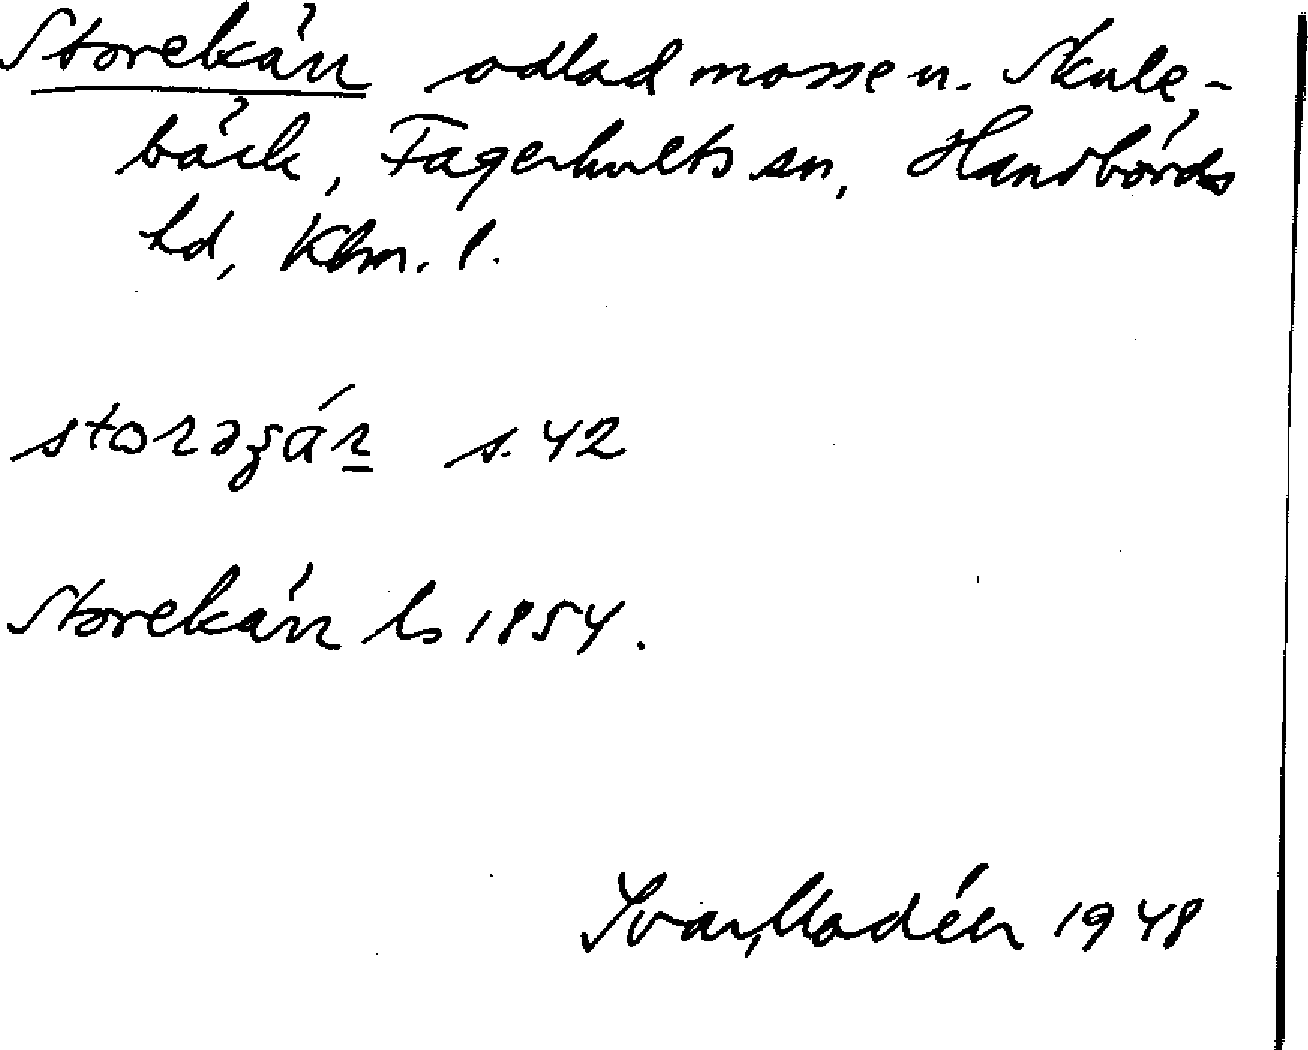 Storekärr odlad mosse u. Skule-
bäck, Fagerhults sn, Handbörds
hd, Klm. l.
s. 42
Storekärr ls 1854.
Ivar Modéer 1948